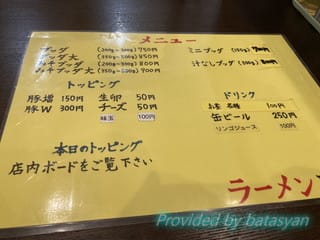 メニュー
ブッダ (200g~300g) 750円
ブッダ大 850円
800円
大 900円
ミニブッダ (150g)
汁なしブッダ
トッピング
豚増 150円 生卵 50円
豚W 300円 チーズ 50円
味玉 100円
ドリンク
お茶 各種 100円
缶ビール 250円
リンゴジュース 100円
本日のトッピング
店内ボードをご覧下さい
ラーメン
Provided by batasyan